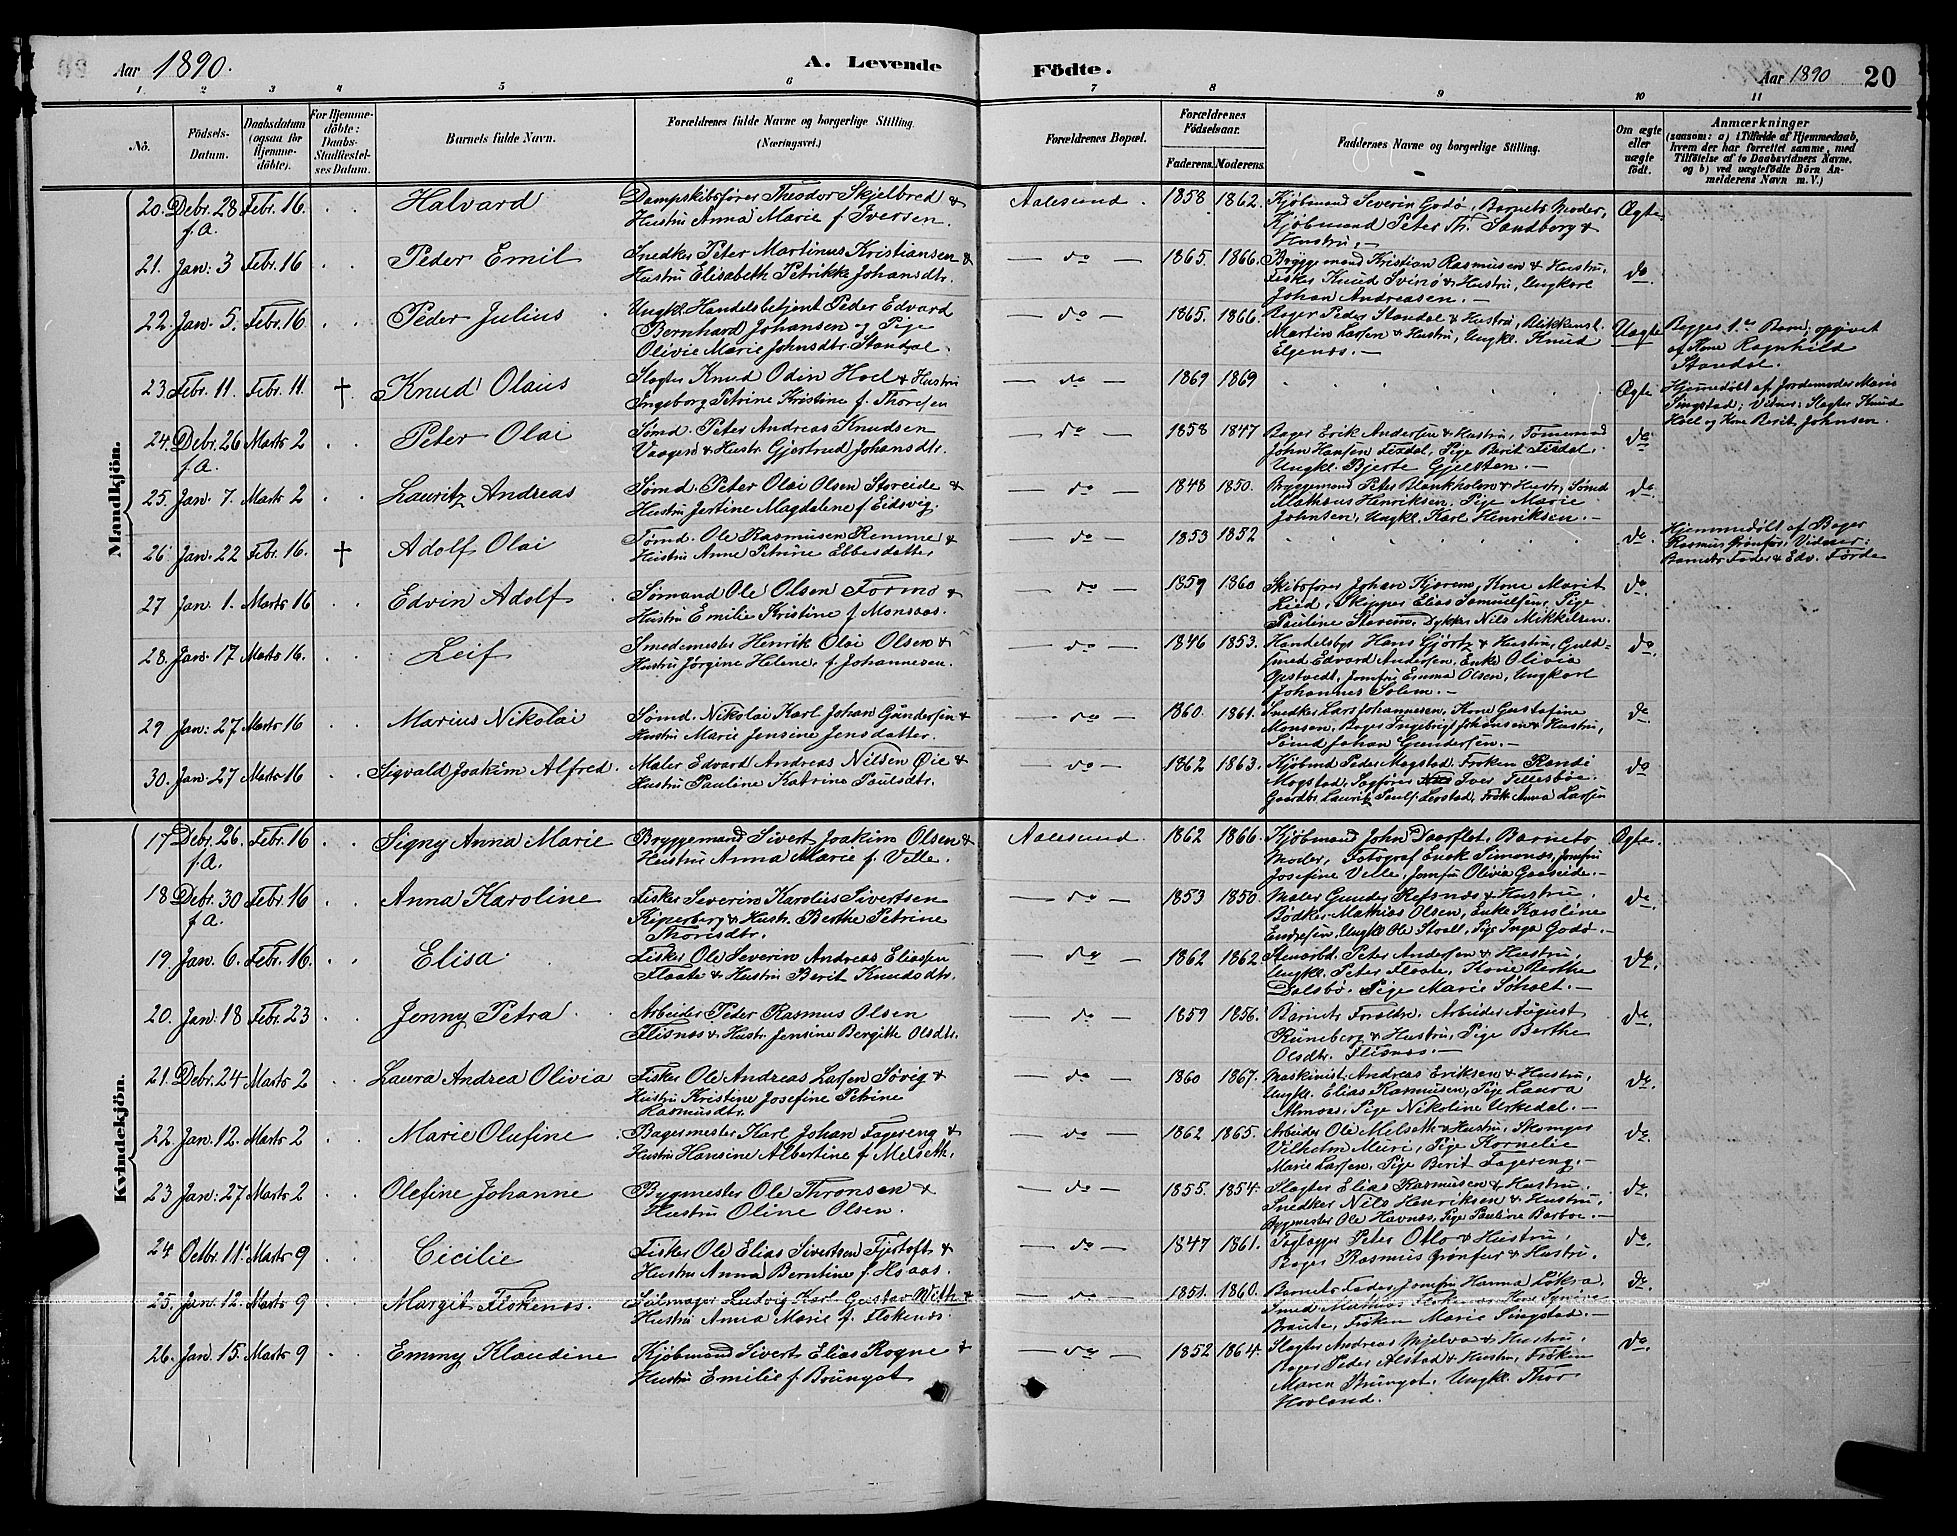 Aar 1890.
A. Levende
Födte.
Aar 1890
20
1 2 3 4 5 6 7 8 9 10 11
No.
Födsels-Datum.
Daabsdatum (ogsaa for Hjemmedöbte).
For Hjemmedöbte: Daabs-Stadfæstelses Datum.
Barnets fulde Navn.
Forældrenes fulde Navne og borgerlige Stilling. (Næringsvei.)
Forældrenes Bopæl.
Forældrenes Födselsaar.
Faderens. Moderens.
Faddernes Navne og borgerlige Stilling.
Om ægte eller uægte födt.
Anmærkninger
(saasom: a) i Tilfælde af Hjemmedaab, hvem der har forrettet samme, med Tilföielse af to Daabsvidners Navne, og b) ved uægtefödte Börn Anmelderens Navn m. V.)
Mandkjön.
20. Debr. 28 f.A. Febr. 16. Halvard
Dampskibsfører Theodor Skjelbred &
Hustru Anna Marie f. Iversen.
Aalesund. 1858 1862.
Kjöbmand Severin Godø, Barnets Moder,
Kjöbmand Peter Th. Sandborg &
Hustru.—
Ægte
21. Jan. 3 Febr. 16 Peder Emil
Snedker Peter Martinus Kristiansen &
Hustru Elisabeth Petrikke Johansdtr.
— do — 1865. 1866.
Bryggemand Kristian Rasmusen & Hustru.
Fisker Knud Svinø & Hustru, Ungkarl
Johan Andreasen.—
do
22. Jan. 5. Febr. 16 Peder Julius
Ungk. Handelsbetjent Peder Edvard
Bernhard Johansen og Pige
Olivie Marie Johnsdtr. Standal.
— do — 1865. 1866.
Bager Peder Standal & Hustru, Blikkensl.
Martin Larsen & Hustru, Ungkl. Knud
Elgenæs.—
Uægte
Begges 1ste Barn, opgivet
af Kone Ragnhild
Standal.
23. Febr. 11 Febr. 11. † Knud Olaus
Slagter Knud Odin Hoel & Hustru
Ingeborg Petrine Kristine f. Thoresen
— do — 1869 1869
Ægte
Hjemmedöbt af Jordemoder Marie
Singstad; Vidner: Slagter Knud
Hoel og Kone Berit Johnsen.
24. Debr. 26 f.A. Marts 2 Peter Olai
Sømd. Peter Andreas Knudsen
Vaagen & Hustr. Gjertrud Johansdtr.
— do — 1858 1847
Bager Erik Andersen & Hustru, Tømmermd.
John Hansen Fixdal, Pige Berit Fixdal,
Ungkl. Bjerte Gjelsten.—
do
25. Jan. 7. Marts 2 Lauritz Andreas
Sømd. Peter Olai Olsen Storeide &
Hustru Jertine Magdalene f. Eidsvig.
— do — 1848 1850.
Bryggemand Peter Vankholm & Hustr., Sømd
Mathæus Henriksen, Pige Marie
Johnsen, Ungkl. Karl Henriksen.—
do
26. Jan. 22 Febr. 16. † Adolf Olai
Tømd. Ole Rasmusen Remme &
Hustru Anne Petrine Ebbesdatter
— do — 1853 1852
do
Hjemmedöbt af Bager
Rasmus Grønfur, Vidner:
Barnets Fader & Edv. Førde
27 Jan. 1. Marts 16 Edvin Adolf
Sømand Ole Olsen Formo &
Hustru Emilie Kristine f. Monsaas.
— do — 1859 1860
Skibsfører Johan Kjærem, Kone Marit
Lied, Skipper Elias Samuelsen, Pige
Pauline Stavem, Dykker Nils Mikkelsen.
do
28. Jan. 17 Marts 16. Leif
Smedemester Henrik Olai Olsen &
Hustru Jörgine Helene f. Johannesen.
— do — 1846 1853.
Handelsby. Hans Gjörtz & Hustru, Guld-
smed Edvard Andersen, Enke Olivia
Opstvedt, Jomfru Emma Olsen, Ungkarl
Johannes Solem.—
do.
29 Jan. 27 Marts 16 Marius Nikolai
Sømd. Nikolai Karl Johan Gundersen &
Hustru Marie Jensine Jensdatter.
— do — 1860. 1861.
Snedker Lars Johannesen, Kone Gustafine
Monsen, Bager Ingebrigt Johansen & Hustru,
Sømd Johan Gundersen.—
do
30. Jan. 27 Marts 16 Sigvald Joakim Alfred.
Maler Edvard Andreas Nilsen Øie &
Hustru Pauline Katrine Paulsdtr.
— do — 1862 1863.
Kjöbmd Peder Magstad, Frøken Randi
Mogstad, Sagfører Iver Tellesbøe.
Gaardbr. Lauritz Pauls. Lerstad, Frøk. Anna Larsen
do
Kvindekjön.
17 Debr. 26. f.A. Febr. 16 Signy Anna Marie
Bryggemand Sivert Joakim Olsen &
Hustru Anna Marie f. Velle.
Aalesund. 1862 1866.
Kjöbmand John Daarflot, Barnets
Moder, Fotograf Enok Simonæs, Jomfru
Josefine Velle, Jomfru Olivia Gaaseide.—
Ægte.
18 Debr. 30 f.A. Febr. 16 Anna Karoline
Fisker Severin Karolius Sivertsen
Kiperberg & Hustr. Berthe Petrine
Thoresdtr.
— do — 1853 1850.
Maler Gunder Refsnæs & Hustru,
Bødker Mathias Olsen, Enke Karoline
Endresen, Ungkl. Ole Stoall, Pige Inga Godø.—
do.
19 Jan. 6. Febr. 16. Elisa.
Fisker Ole Severin Andreas Eliassen
Flaate & Hustru Berit Knudsdtr.
— do — 1862 1862
Stenarbd. Peter Andersen & Hustru,
Ungkl. Peter Flaate, Kone Berthe
Dalsbø. Pige Marie Søholt.—
do.
20. Jan. 18 Febr. 23 Jenny Petra
Arbeider Peder Rasmus Olsen
Flisnæs & Hustr. Jensine Bergitte Olsdtr.
— do — 1859 1856.
Barnets Forældre. Arbeider August
Runeberg & Hustru, Pige Berthe
Olsdtr. Flisnæs.—
do.
21. Debr. 24 Marts 2 Laura Andrea Olivia
Fisker Ole Andreas Larsen Søvig &
Hustru Kristine Josefine Petrine
Rasmusdtr.
— do — 1860 1867.
Maskinist. Andreas Eriksen & Hustru,
Ungkl. Elias Rasmusen, Pige Laura
Almaas, Pige Nikoline Urkedal.—
do.
22. Jan. 12. Marts 2 Marie Olufine
Bagermester Karl Johan Fagereng &
Hustru Hansine Albertine f. Melseth.
— do — 1862 1865.
Arbeider Ole Melseth & Hustru, Skomager
Vilhelm Muri, Pige Kornelie
Marie Larsen, Pige Berit Fagereng.—
do.
23 Jan. 27 Marts 2 Olefine Johanne
Bygmester Ole Thronsen &
Hustru Oline Olsen.
— do — 1855. 1854.
Slagter Elias Rasmusen & Hustru.
Snedker Nils Henriksen & Hustru.
Bygmester Ole Havnæs, Pige Pauline Barboe.—
do.
24 Octbr. 11. Marts 9 Cicilie
Fisker Ole Elias Sivertsen Fjertoft &
Hustru Anna Berntine f. Haaas.
— do — 1847 1861.
Faglagger Peter Otto & Hustru,
Bager Rasmus Grønfur & Hustru.
do.
25. Jan. 12. Marts 9 Margit Flokenæs.
Seilmager Ludvig Karl Gustav With &
Hustru Anna Marie f. Flokenæs.
— do — 1851. 1860.
Barnets Fader, Jomfru Hanna Løkra,
Smed Mathias Flokenæs, Kone Synøve
Braute, Frøken Marie Singstad.—
do.
26. Jan. 15. Marts 9 Emmy Klaudine
Kjöbmand Sivert Elias Rogne &
Hustru Emilie f. Brungot
— do — 1852 1864.
Slagter Andreas Mjelva & Hustru,
Bager Peder Alstad & Hustru, Frøken
Maren Brungot, Ungkl. Thor
Hovland.
do.